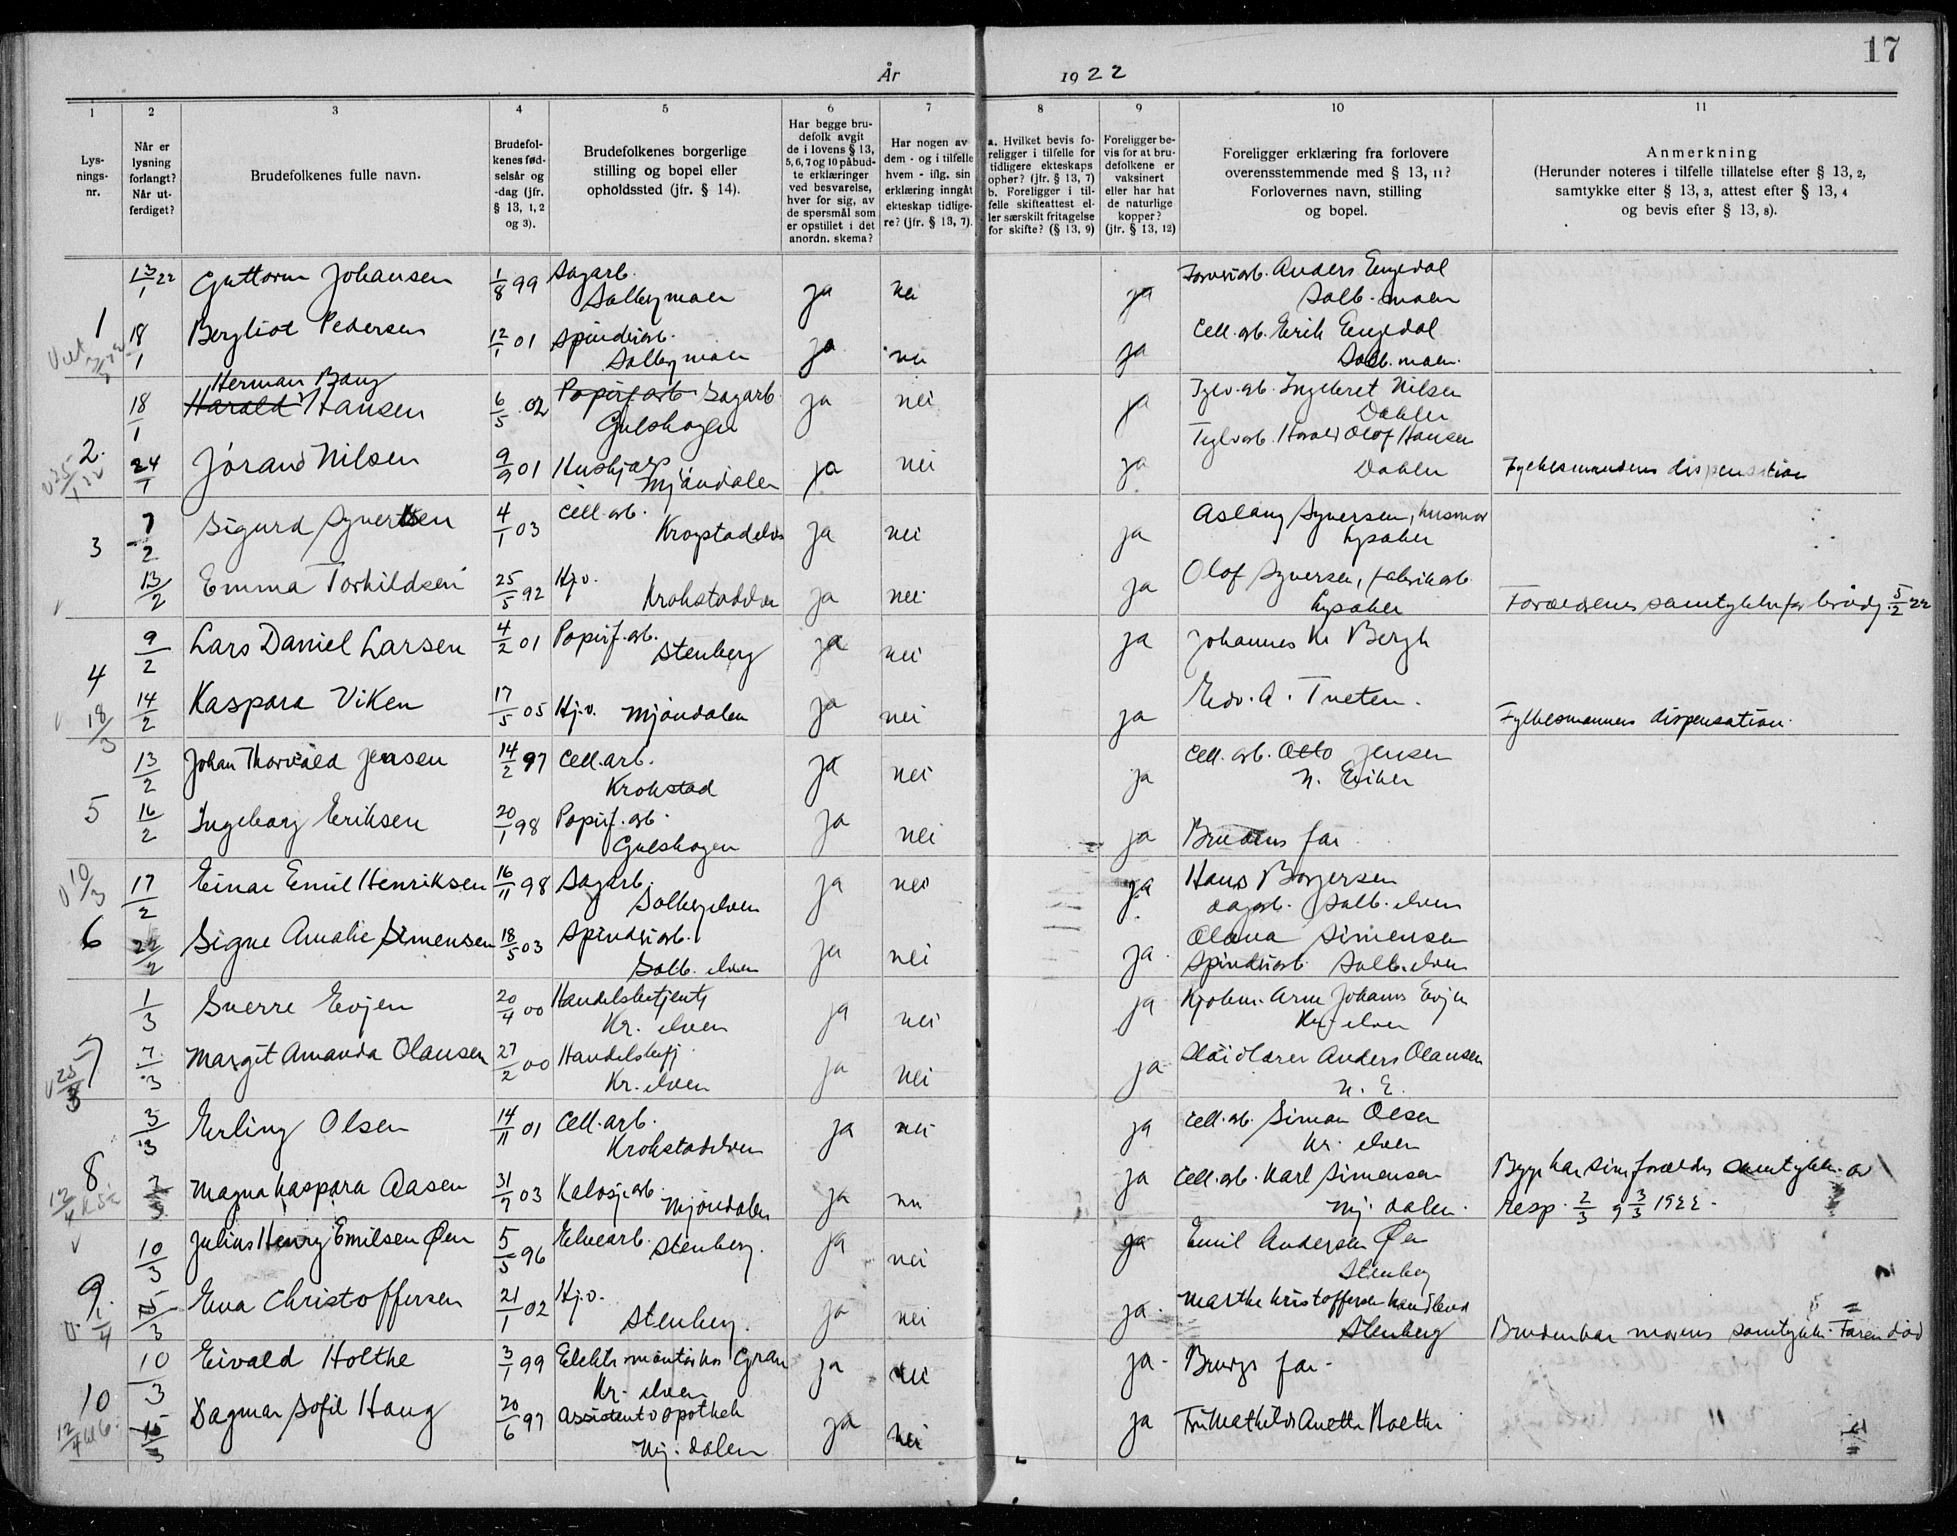 17
År 1922
1 2 3 4 5 6 7 8 9 10 11
Lysnings-nr.
Når er lysning forlangt? Når utferdiget?
Brudefolkenes fulle navn.
Brudefolkenes fødselsår og -dag (jfr. § 13, 1, 2 og 3).
Brudefolkenes borgerlige stilling og bopel eller opholdssted (jfr. § 14).
Har begge brudefolk avgit de i lovens § 13, 5, 6, 7 og 10 påbudte erklæringer ved besvarelse, hver for sig, av de spørsmål som er opstillet i det anordn. skema?
Har nogen av dem - og i tilfelle hvem - iflg. sin erklæring inngåt ekteskap tidligere? (jfr. § 13, 7).
a. Hvilket bevis foreligger i tilfelle for tidligere ekteskaps ophør? (jfr. § 13, 7) b. Foreligger i tilfelle skifteattest eller særskilt fritagelse for skifte? (§ 13, 9)
Foreligger bevis for at brudefolkene er vaksinert eller har hat de naturlige kopper? (jfr. § 13, 12)
Foreligger erklæring fra forlovere overensstemmende med § 13, 11? Forlovernes navn, stilling og bopel.
Anmerkning (Herunder noteres i tilfelle tillatelse efter § 13, 2, samtykke efter § 13, 3, attest efter § 13, 4 og bevis efter § 13, 8).
13/1 22 Guttorm Johansen 1/8 99 Sagarb. Solbergmoen ja nei ja Anders Engedal Solb. moen
1 18/1 Bergliot Pedersen 12/1 01 Spinderiarb. Solbergmoen ja nei ja Cell. arb. Erik Engedal Solb. moen.
18/1 Herman Bang Harald Hansen 6/5 02 Papirf. arb Sagarb. Gulskogen ja nei ja Ingebret Nilsen Dahler
2. 24/1 Jórand Nilsen 9/9 01 Hushjælp Mjöndalen ja nei ja Teglv. arb. Harald Olof Hansen Dahler Fylkesmandens dispensation
3 7/2 Sigurd Syvertsen 4/1 03 Cell. arb. Krogstadelven ja nei ja Aslaug Syversen, husmor Lysaker
13/2 Emma Torkildsen 25/5 92 Hj.v. Krokstadelven ja nei ja Olof Syversen, fabrikarb. Lysaker Forældrenes samtykke for brudg. 5/2 22
9/2 Lars Daniel Larsen 4/2 01 Papirf. arb. Stenberg ja nei ja Johannes Kr Bergh
4 18/3 14/2 Kaspara Viken 17/5 05 Hj.v. Mjöndalen ja nei ja Edv. A. Tveten. Fylkesmannens dispensation.
13/2 Johan Thorvald Jensen 14/2 97 Cell. arb. Krokstad ja nei ja Cell. arb. Otto Jensen N. Eiker
5 16/2 Ingeborg Eriksen 20/1 98 Papirf. arb. Gulskogen ja nei ja Brudens far
10/3 17/2 Einar Emil Henriksen 16/11 98 Sagarb. Solbergelven ja nei ja Hans Borgersen Sagarb. Solb. elven
6 22/2 Signe Amalie Simensen 18/5 03 Spinderiarb. Solb. elven ja nei ja Olava Simensen Spinderiarb. Solb. elven
1/3 Sverre Evjen 20/4 00 Handelsbetjent Kr. elven ja nei ja Kjøbm. Arne Johannes Evjen Kr. elven
7 25/3 7/3 Margit Amanda Olausen 27/2 00 Handelsbetj. Kr. elven ja nei ja Sløidlærer Anders Olausen N. E.
3/3 Erling Olsen 14/11 01 Cell. arb. Krokstadelven ja nei ja Cell. arb. Simon Olsen Kr. elven
8 12/4 7/3 Magna Kaspara Aasen 31/7 03 Kalosjearb. Mjöndalen ja nei ja Cell. arb. Karl Simensen Mj. dalen. Begge har sine forældres samtykke av resp. 2/3 og 3/3 1922.
10/3 Julius Henry Emilsen Øen 5/5 96 Elvearb. Stenberg. ja nei ja Emil Andersen Øen Stenberg
9. 1/4 15/3 Eva Christoffersen 21/1 02 Hj.v. Stenberg. ja nei ja Marthe Kristoffersen Stenberg Bruden har morens samtykke. Faren död
10/3 Eivald Holthe 3/1 99 Elektr. montør hos Gran Kr. elven ja nei ja Brudgs far
10 12/4 15/3 Dagmar Sofie Haug 20/6 97 Assistent v. apothek Mj. dalen ja nei ja Fru Mathilde Anette Holthe